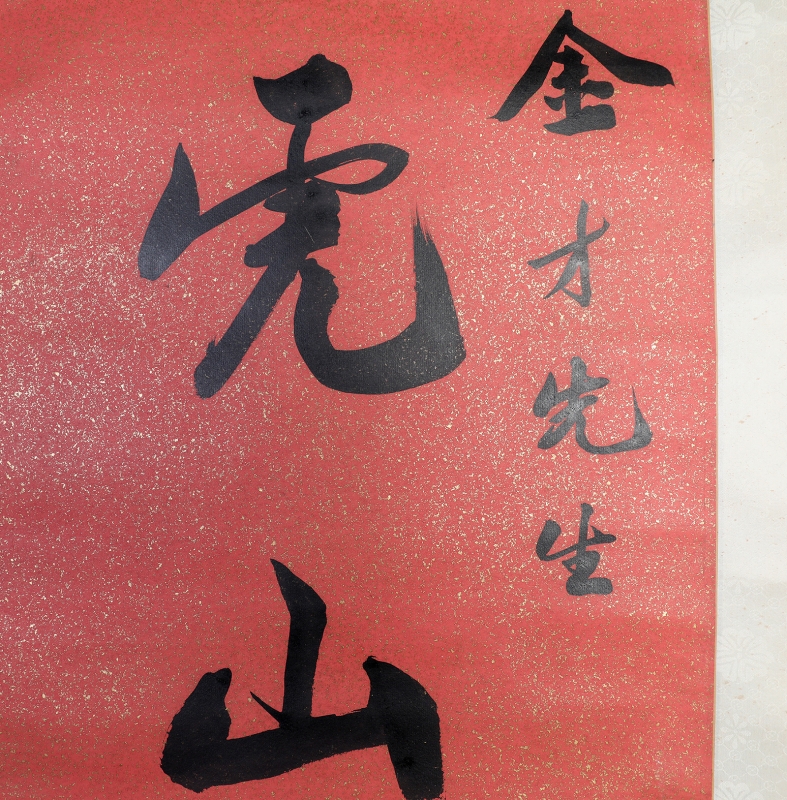 金才先生
虎山